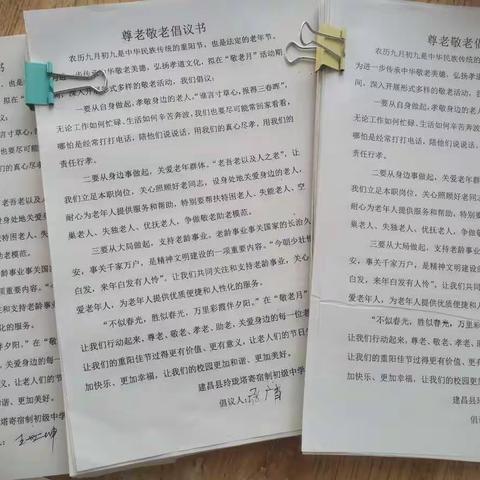 尊老敬老倡议书
农历九月初九是中华民族传统的重阳节，也是法定的老年节。
为进一步传承中华敬老美德，弘扬孝道文化，拟在“敬老月”活动期
间，深入开展形式多样的敬老活动，我们倡议：
一要从自身做起，孝敬身边的老人。“谁言寸草心，报得三春晖”，
无论工作如何忙碌、生活如何辛苦奔波，我们也要尽可能常回家看看，
哪怕是经常打打电话，陪他们说说话，用我们的真心尽孝，用我们的
责任行孝。
二要从身边事做起，关爱老年群体。“老吾老以及人之老”，让
我们立足本职岗位，关心照顾好老同志，设身处地关爱身边
耐心为老年人提供服务和帮助，特别要帮扶特困老人、失能老人、空
巢老人、失独老人、优抚老人，争做敬老助老模范。
三要从大局做起，支持老龄事业。老龄事业事关国家的长治久
安，事关千家万户，是精神文明建设的一项重要内容。“今朝少壮
白发，来年白发有人怜”，让我们共同关注和支持老龄事业，关心
爱老年人，为老年人提供优质便捷和人性化的服务。
“不似春光，胜似春光，万里彩霞伴夕阳。”在“敬老月”
让我们行动起来，尊老、敬老、孝老、助老，关爱身边的每一位老
让我们的重阳佳节过得更有价值、更有意义，让老人们的节日
加快乐、更加幸福，让我们的校园更加和谐、更加美好。
建昌县玲珑塔寄宿制初级中学
倡议人：
尊老敬老倡议
农历九月初九是中华民族传统的重阳
为进一步传承中华敬老美德，弘扬孝道文
间，深入开展形式多样的敬老活动，我们
一要从自身做起，孝敬身边的老人
无论工作如何忙碌、生活如何辛苦奔波
哪怕是经常打打电话，陪他们说说话，
责任行孝。
二要从身边事做起，关爱老年群
我们立足本职岗位，关心照顾好老同
耐心为老年人提供服务和帮助，特别
巢老人、失独老人、优抚老人，争做
三要从大局做起，支持老龄事
安，事关千家万户，是精神文明建设
白发，来年白发有人怜”，让我们共
爱老年人，为老年人提供优质便捷
“不似春光，胜似春光，万里
让我们行动起来，尊老、敬老、孝老
让我们的重阳佳节过得更有价值、
加快乐、更加幸福，让我们的校园
建昌县玲珑塔
倡议